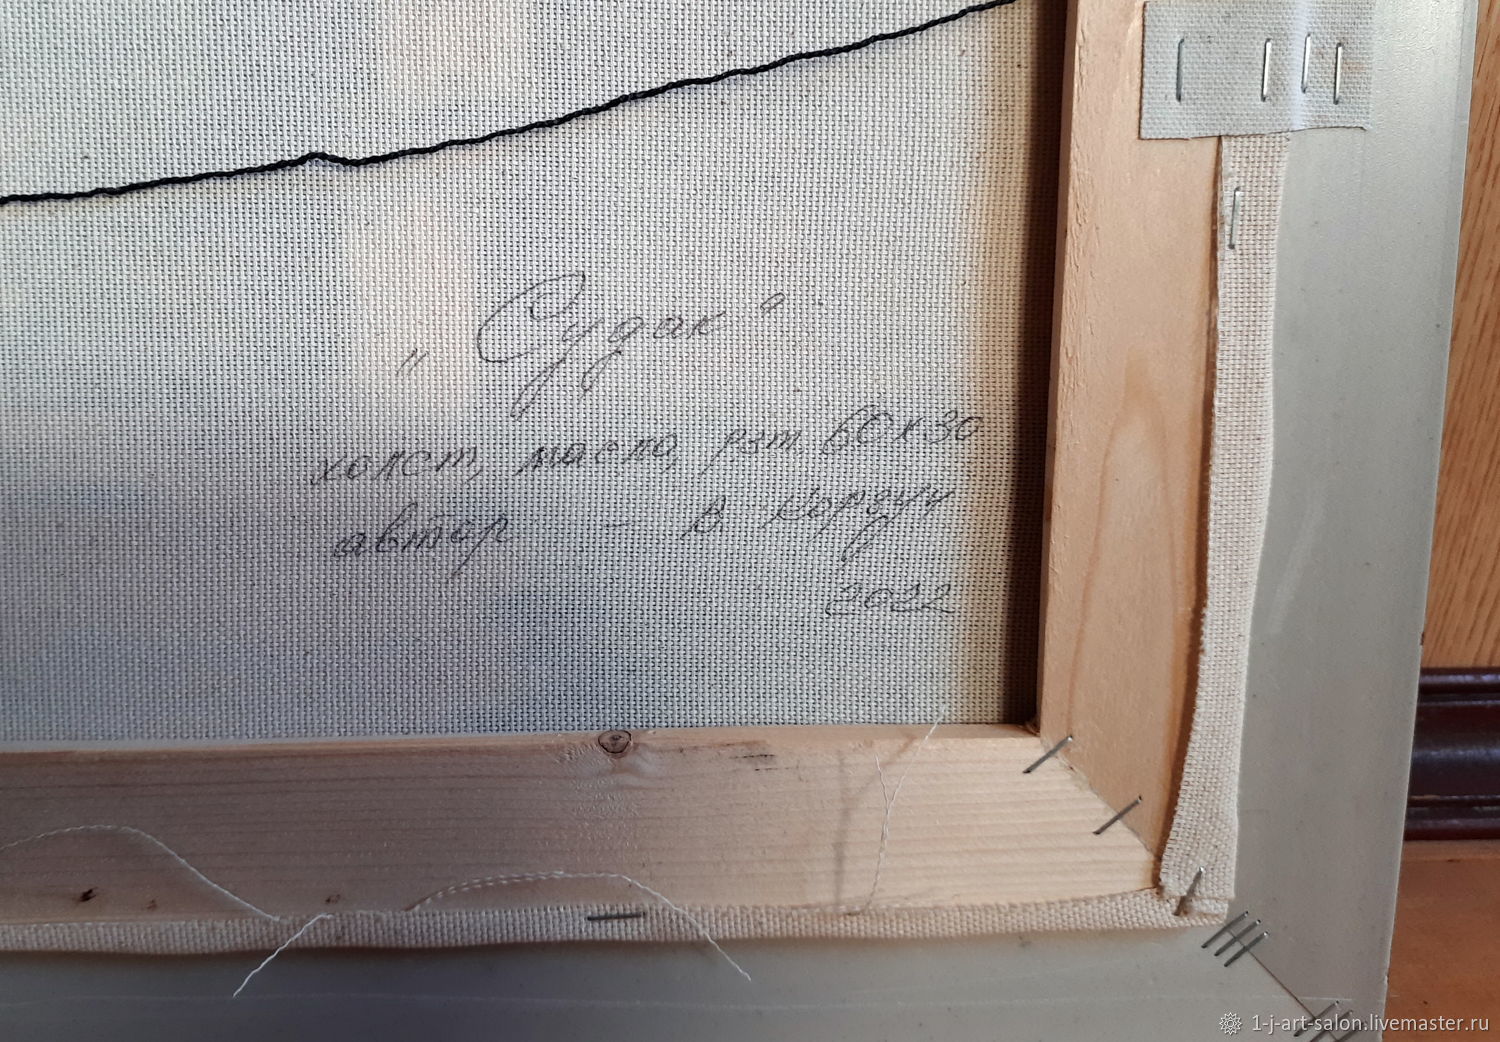 „Судак"
холст, масло, рзт. 60х30
автор - В. Кордуу
2022
1-j-art-salon.livemaster.ru